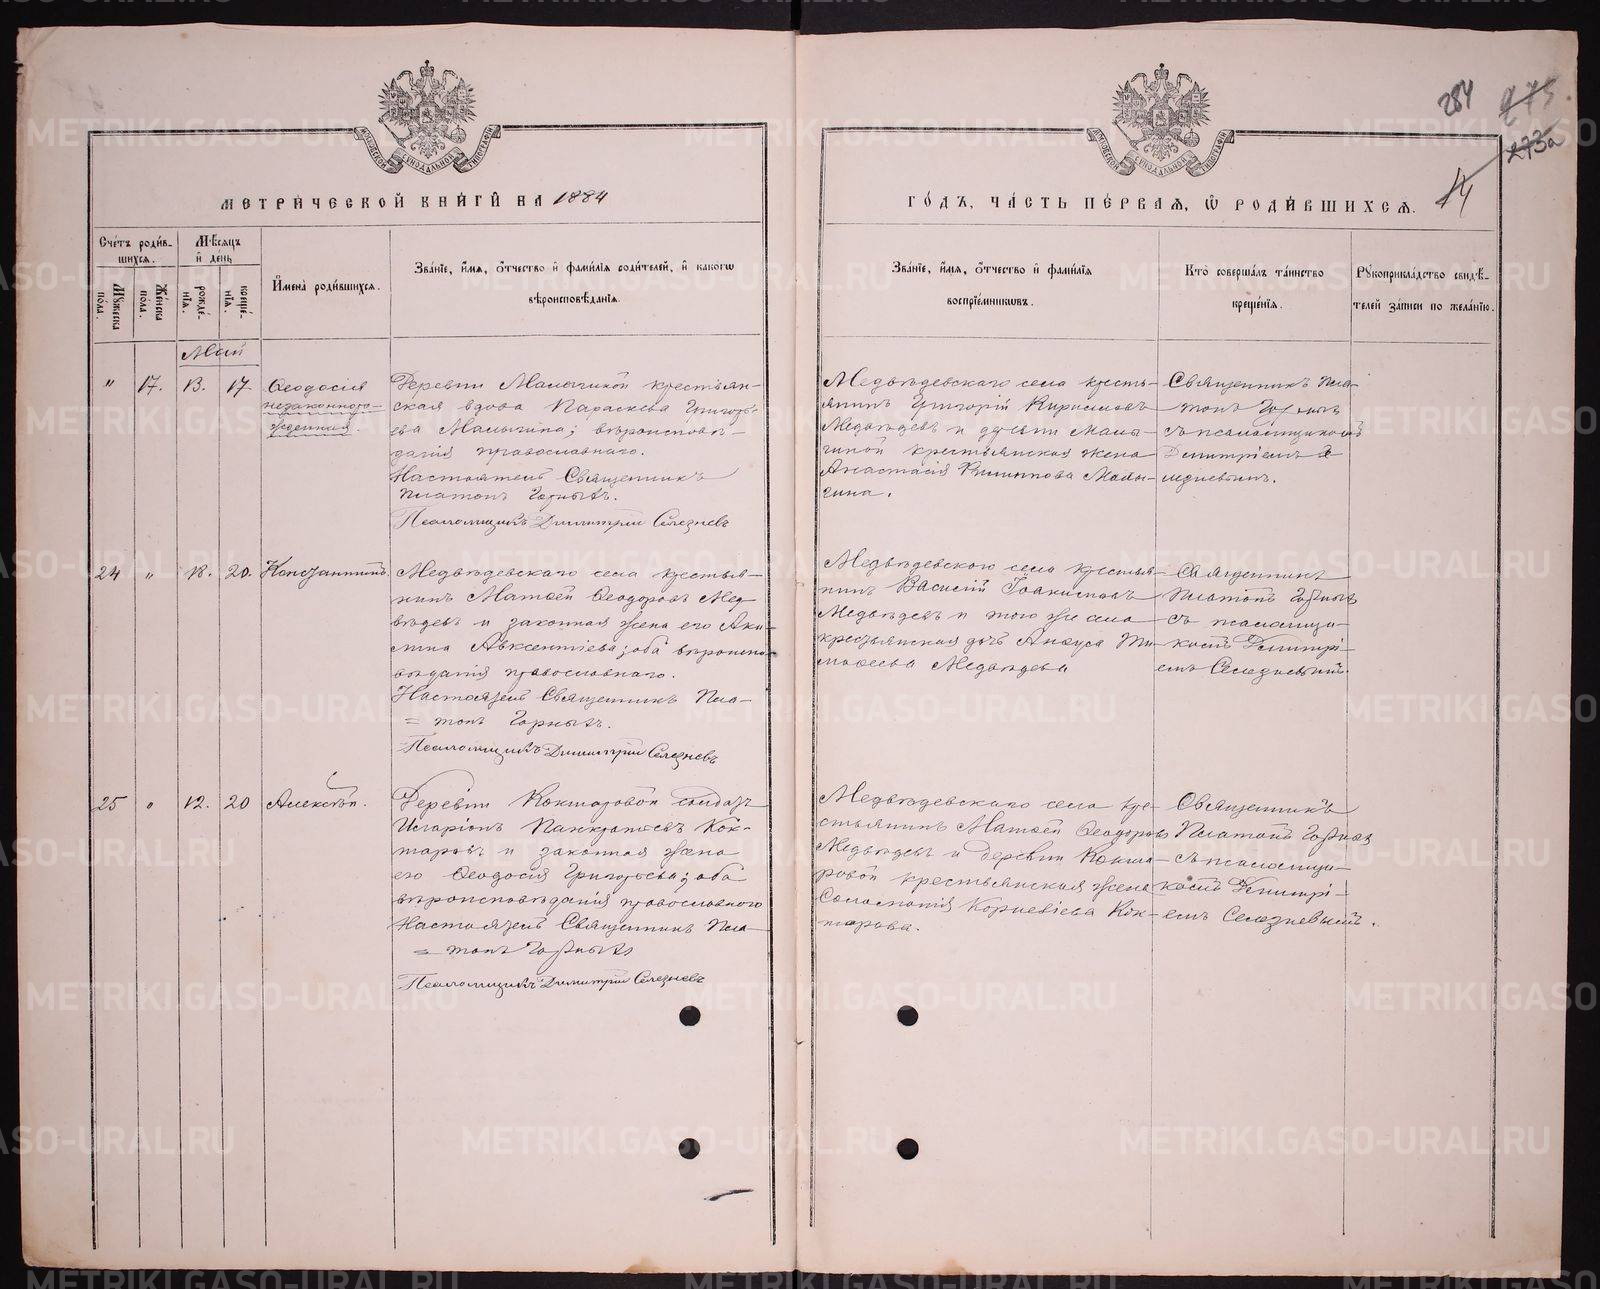 284
275
273а
14
МОСКОВСКОЙ СУНОДАЛЬНОЙ ТИПОГРАФІИ
МОСКОВСКОЙ СУНОДАЛЬНОЙ ТИПОГРАФІИ
МЕТРИ́ЧЕСКОЙ КНИ́ГИ НА 1884
ГО́ДЪ, ЧА́СТЬ ПЕ́РВАЯ, Ѡ РОДИ́ВШИХСЯ.
Сче́тъ роди́вшихся.
Му́жеска по́ла.
Же́нска по́ла.
Мѣ́сяцъ и де́нь
рожде́нїя.
креще́нїя.
И҆мена̀ роди́вшихся.
Зва́нїе, и҆́мя, ѻ҆́тчество и҆ фами́лїя роди́телей, и҆ како́гѡ
вѣроисповѣ́данїя.
Зва́нїе, и҆́мя, ѻ҆́тчество и҆ фами́лїя
воспрїе́мникѡвъ.
Кто̀ соверша́лъ та́инство
креще́нїя.
Рꙋкоприкла́дство свидѣ́-
телей за́писи по жела́нїю.
Май
" 17. 13. 17. Ѳеодосія
незаконноро-
жденная.
Деревни Малыгиной крестьян-
ская вдова Параскева Григорь-
ева Малыгина; вѣроисповѣ-
данія православнаго.
Настоятель Священникъ
Платонъ Горныхъ.
Псаломщикъ Димитрій Селезневъ
Медвѣдевскаго села кресть-
янинъ Григорій Кириловъ
Медвѣдевъ и деревни Малы-
гиной крестьянская жена
Анастасія Филиппова Малы-
гина.
Священникъ Пла-
тонъ Горныхъ
съ псаломщикомъ
Димитріемъ Се-
лезневымъ.
24 " 18. 20. Константинъ
Медвѣдевскаго села крестья-
нинъ Матѳей Ѳеодоровъ Мед-
вѣдевъ и законная жена его Аки-
лина Авксентіева; оба вѣроиспо-
вѣданія православнаго.
Настоятель Священникъ Пла-
= тонъ Горныхъ.
Псаломщикъ Димитрій Селезневъ
Медвѣдевскаго села крестья-
нинъ Василій Іоакимовъ
Медвѣдевъ и того же села
крестьянская дочь Анѳуса Ти-
моѳеева Медвѣдева
Священникъ
Платонъ Горныхъ
съ псаломщи-
комъ Димитрі-
емъ Селезневымъ.
25 " 12. 20 Алексѣй.
Деревни Кокшаровой солдатъ
Иларіонъ Панкратьевъ Кок-
шаровъ и законная жена
его Ѳеодосія Григорьева; оба
вѣроисповѣданія православнаго
Настоятель Священникъ Пла-
= тонъ Горныхъ
Псаломщикъ Димитрій Селезневъ
Медвѣдевскаго села кре-
стьянинъ Матѳей Ѳеодоровъ
Медвѣдевъ и деревни Кокша-
ровой крестьянская жена
Соломонія Корнеліева Кок-
шарова.
Священникъ
Платонъ Горныхъ
съ псаломщи-
комъ Димитрі-
емъ Селезневымъ.
METRIKI.GASO-URAL.RU